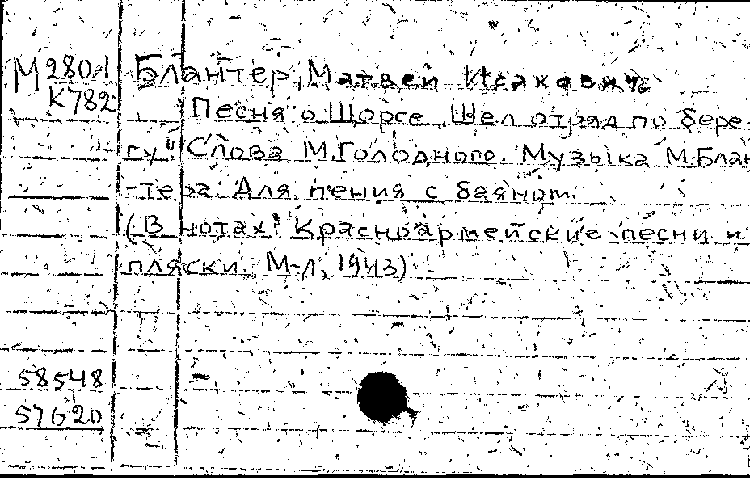 М 280-1 Блантер, Матвей Исакович
К782 Песня о Щорсе „Шел отряд по бере-
гу" Слова М.Голодного. Музыка М.Блан
-тера Для пения с баяном.
(В нотах: Красноармейские песни и
пляски. М-Л, 1943)
58548
57620